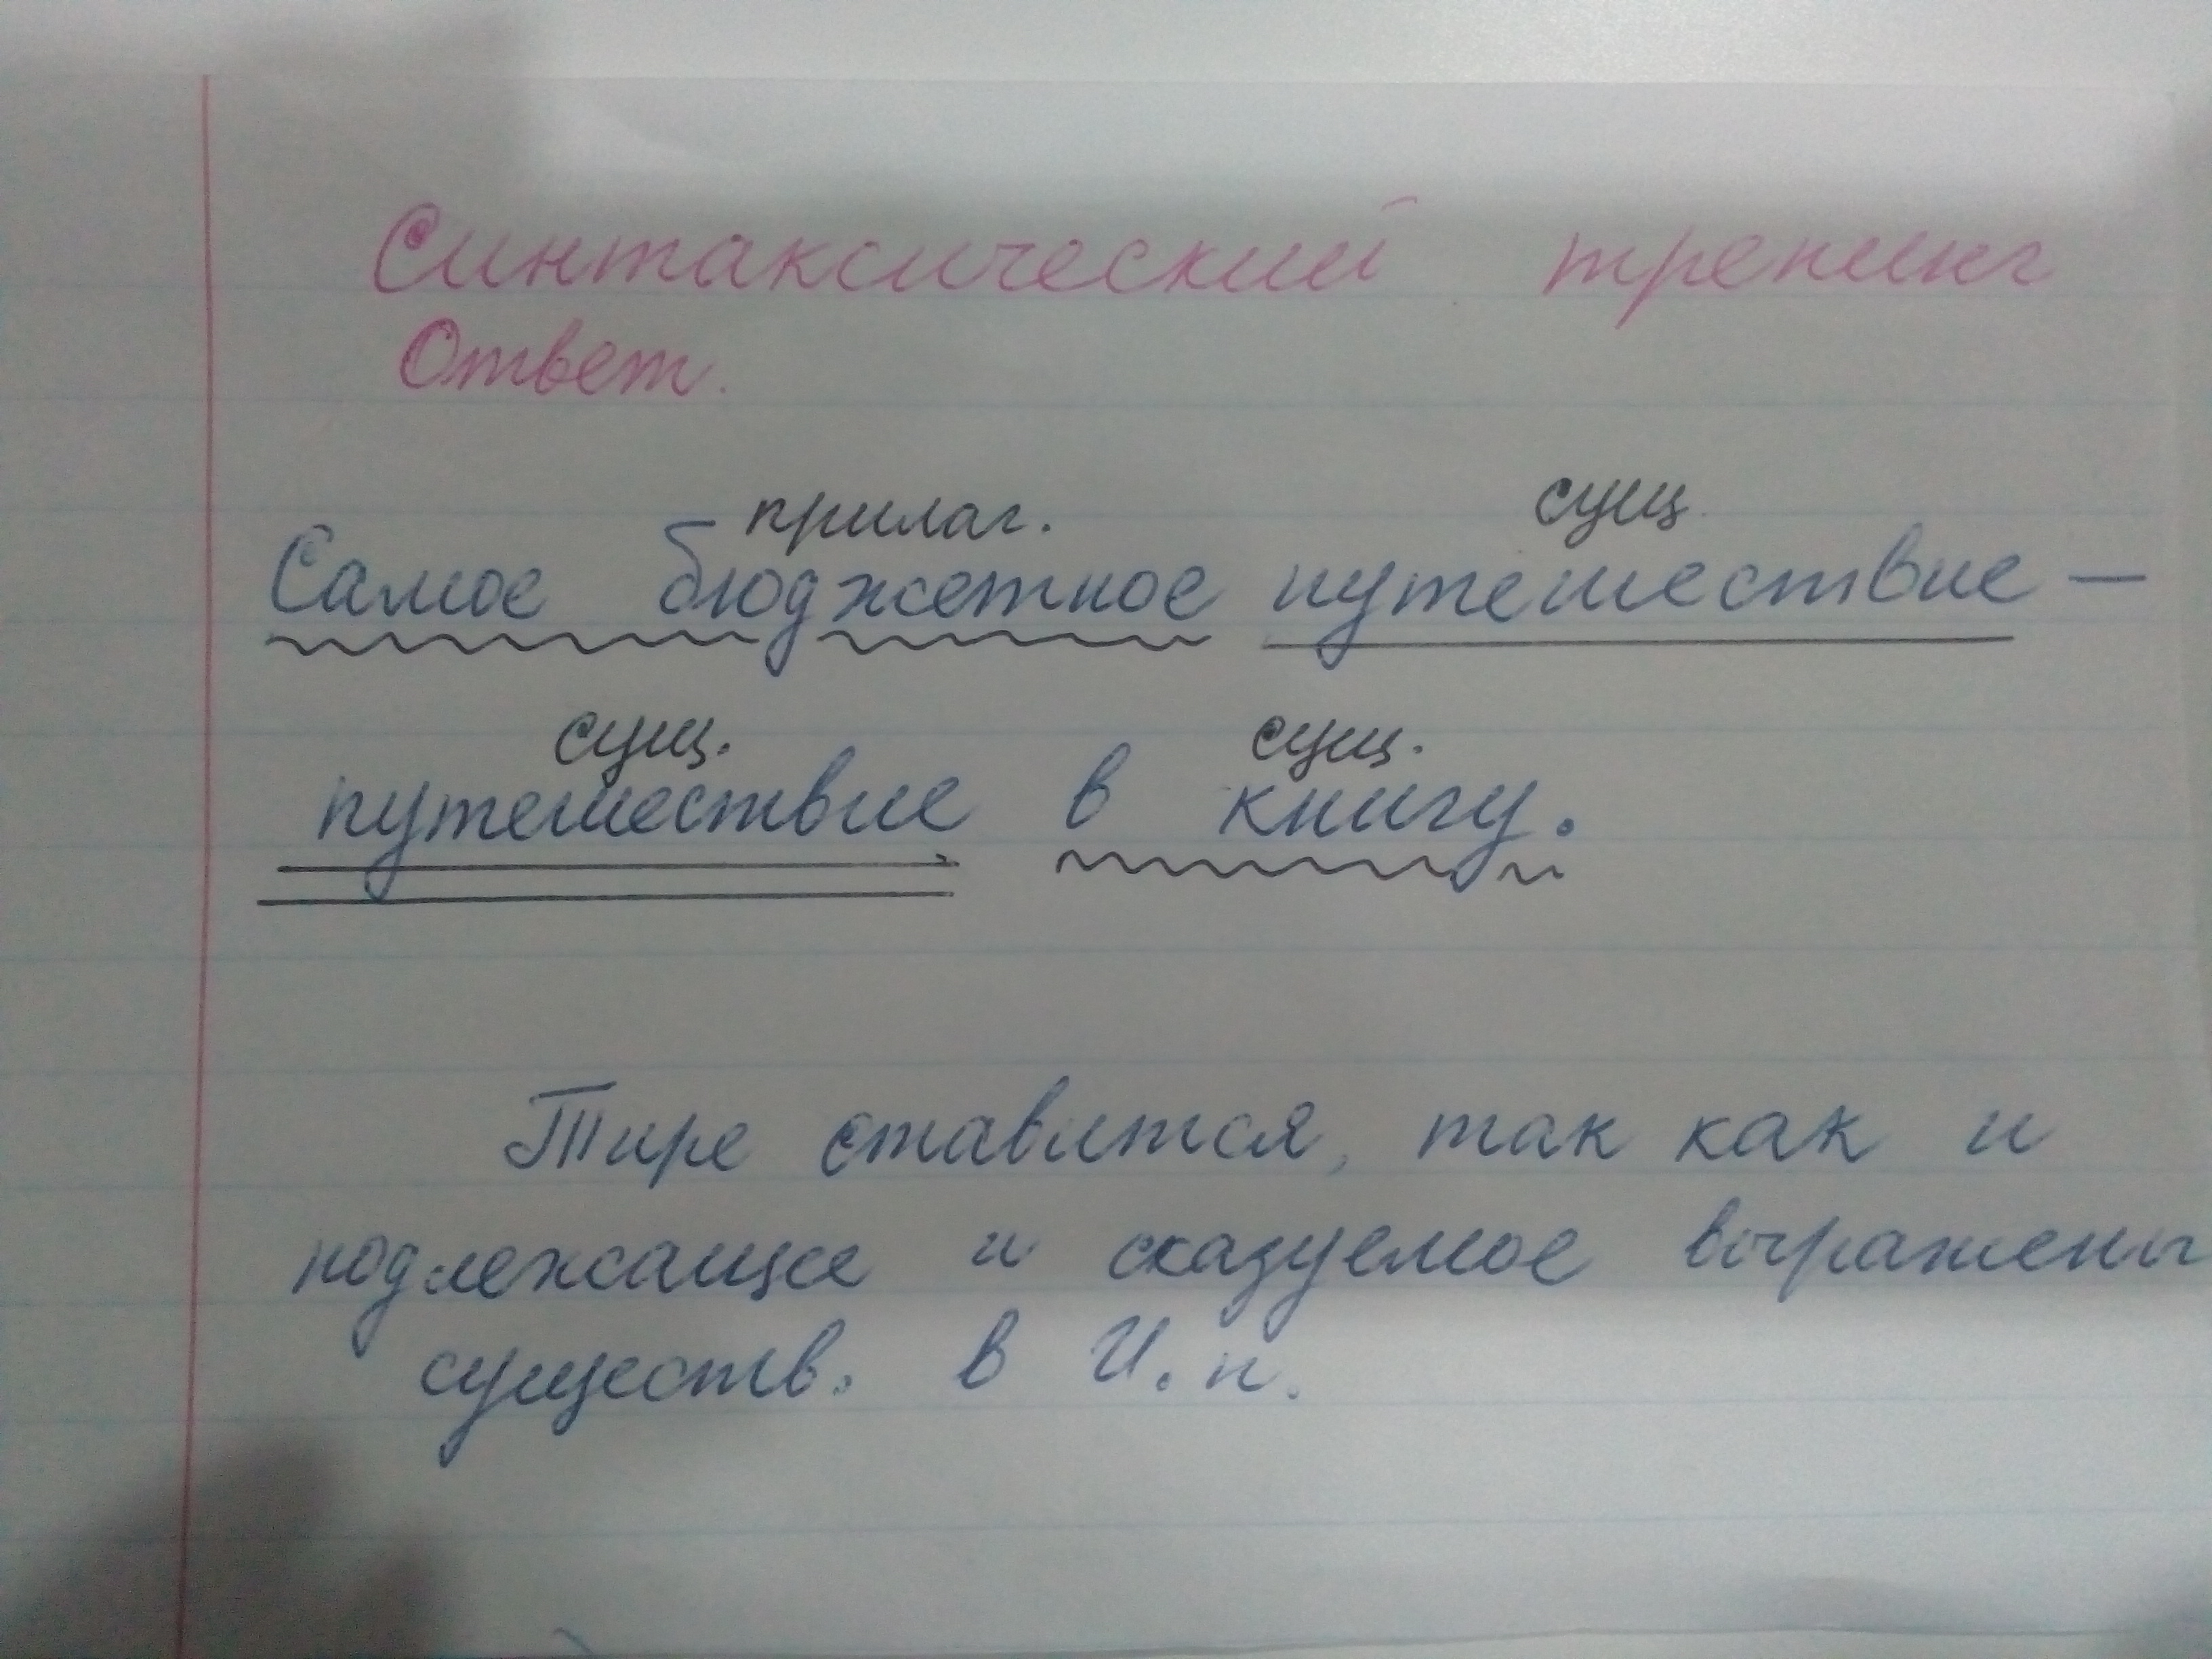 Синтаксический тренинг
Ответ.
прилаг. сущ.
Самое бюджетное путешествие —
сущ. сущ.
путешествие в книгу.
Тире ставится, так как и
подлежащее и сказуемое выражены
существ. в И.п.